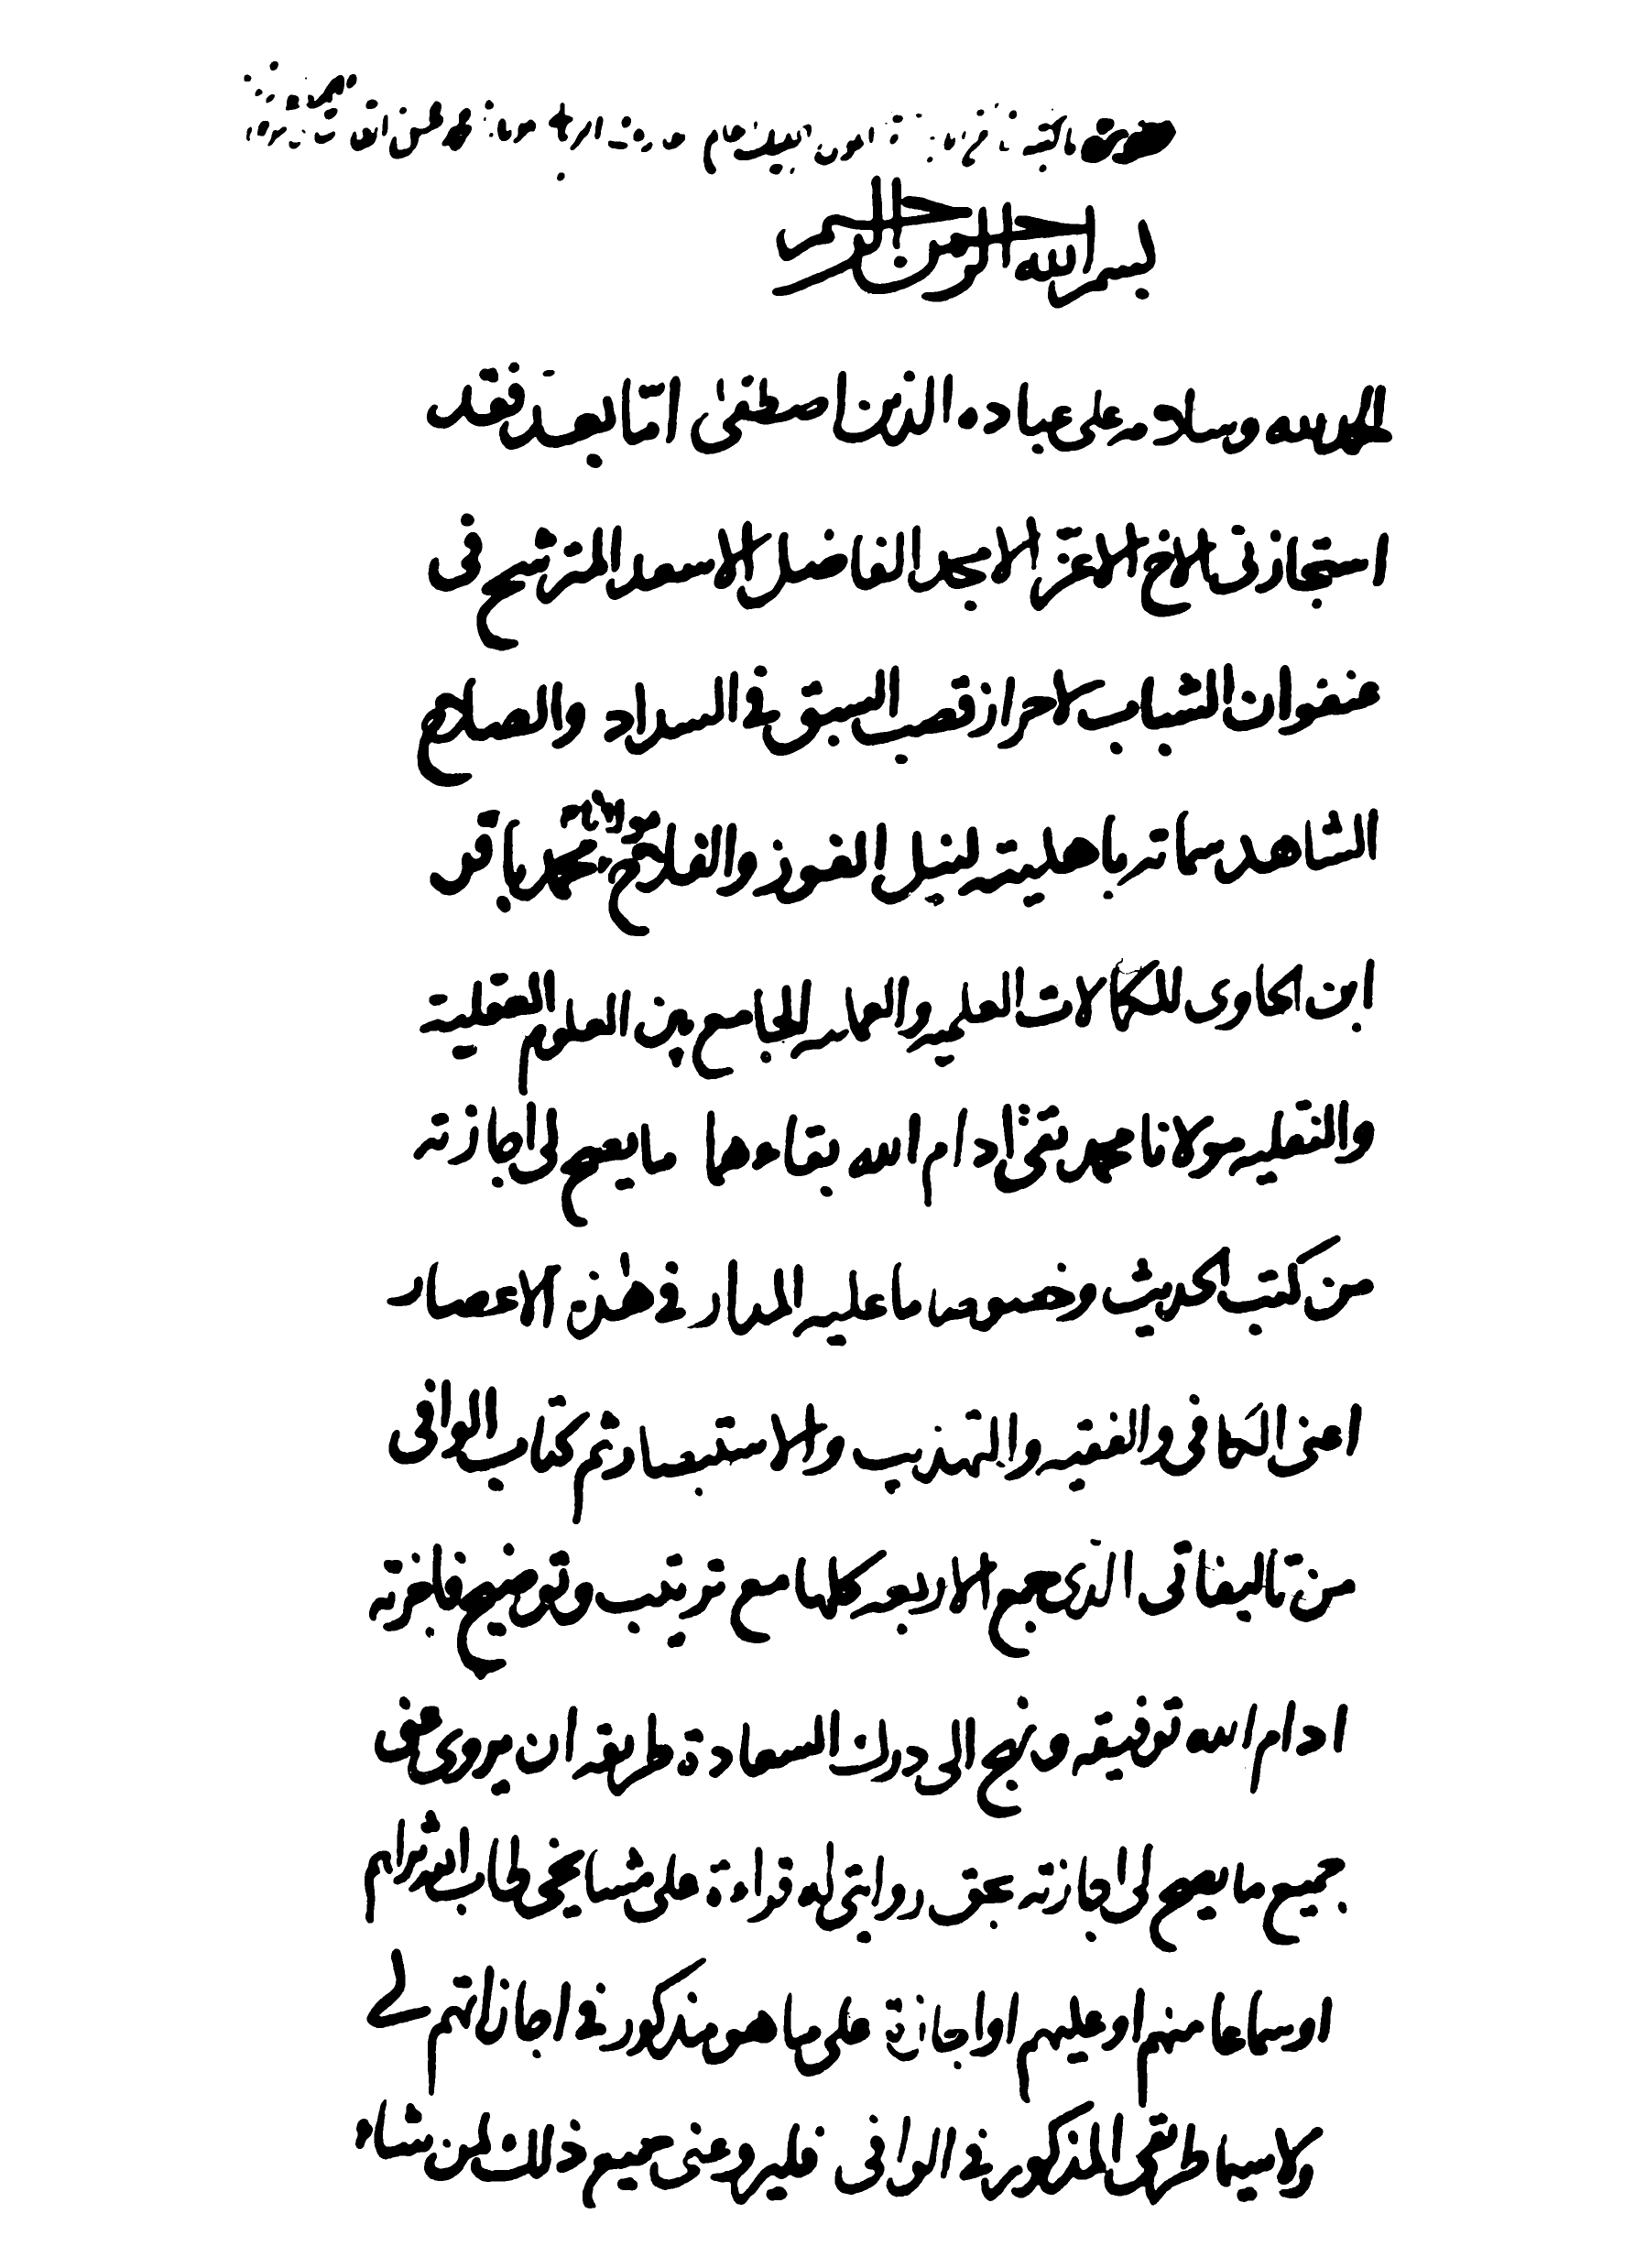 صورة ما كتبه
بسم الله الرحمن الرحيم
الحمد لله وسلام على عباده الذين اصطفى امّا بعد فقد
استجازنى الاخ الاعزّ الامجد الفاضل الاسعد المترشح فى
عنفوان الشباب لاحراز قصب السبق فى السداد والصلاح
الشاهد سماته باهليته لنيل الفوز والفلاح مولانا محمد باقر
ابن الحاوى للكمالات العلميه والعمليه الجامع بين العلوم العقلية
والنقليه مولانا محمد تقى ادام الله بقاءهما ما يصح لى اجازته
من كتب الحديث وخصوصا ما عليه المدار فى هذه الاعصار
اعنى الكافى والفقيه والتهذيب والاستبصار ثم كتاب الوافى
من تاليفاتى الذى جمع الاربعه كلها مع ترتيب وتوضيح فاجزته
ادام الله توفيقه ونهج الى درك السعادة طريقه ان يروى عنى
جميع ما يصح لى اجازته بحق روايتى له قراءة على مشايخى طاب الله ثراهم
او سماعا منهم او عليهم او اجازة على ما هو مذكور فى اجازاتهم لى
ولا سيما طريقى المذكور فى الوافى فليرو عنى جميع ذلك لمن شاء